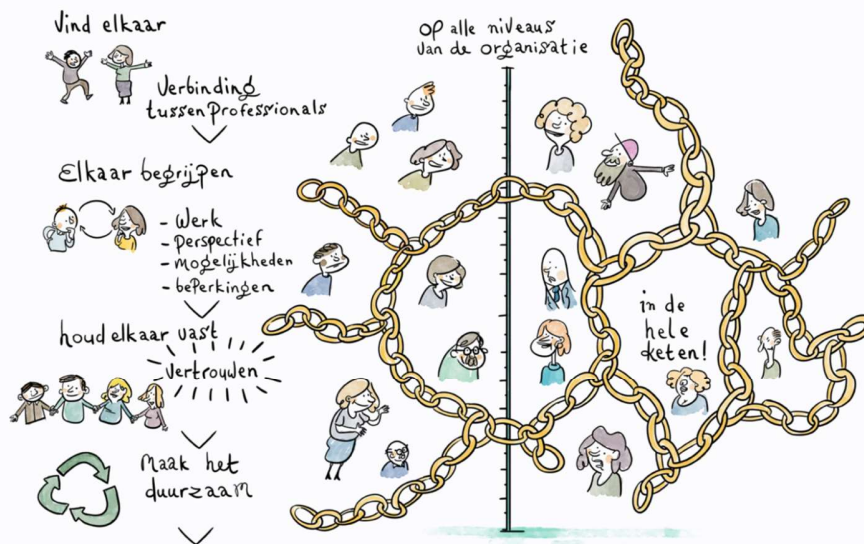 Vind elkaar
Verbinding
tussen professionals
Elkaar begrijpen
- Werk
- perspectief
- mogelijkheden
- bePerkingen
houd elkaar vast
vertrouwen
Maak het
duurzaam
op alle niveaus
van de organisatie
in de
hele
keten!